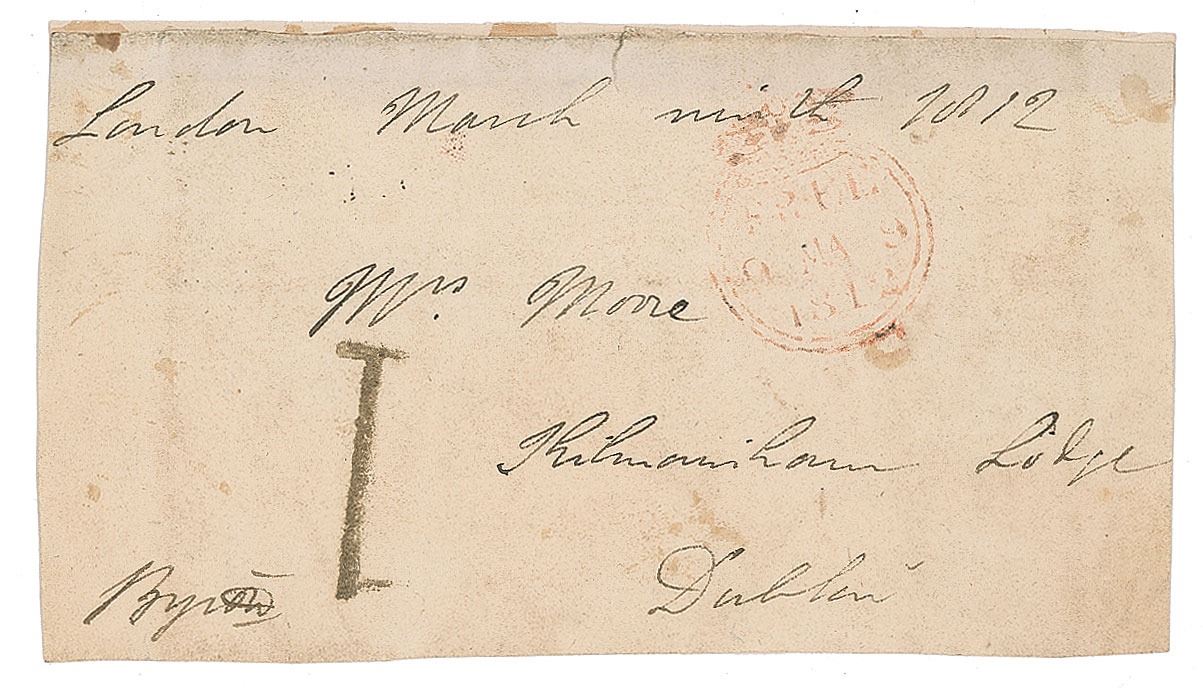 London March ninth 1812
FREE
9 MA 9
1812
Mrs Moore
Kilmainham Lodge
Dublin
Byron